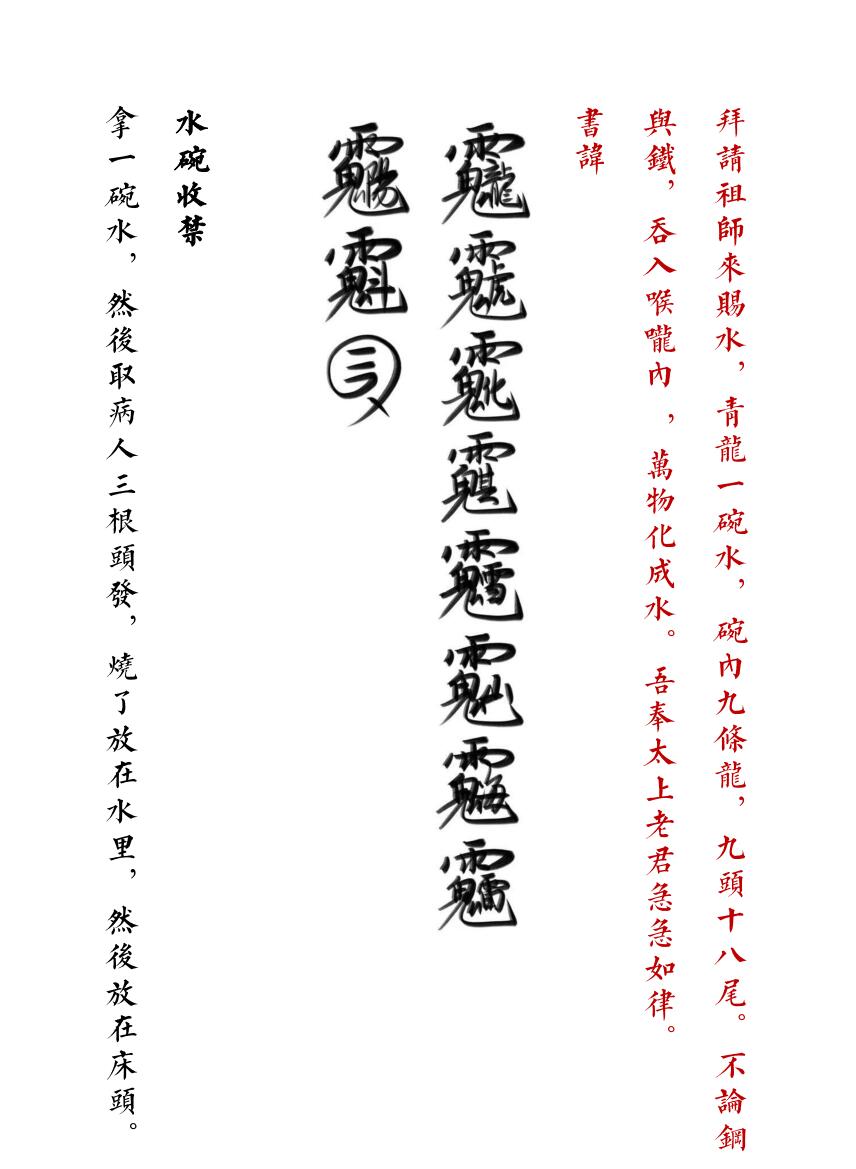 拜請祖師來賜水，青龍一碗水，碗內九條龍，九頭十八尾。不論鋼
與鐵，吞入喉嚨內，萬物化成水。吾奉太上老君急急如律。
書諱
水碗收禁
拿一碗水，然後取病人三根頭發，燒了放在水里，然後放在床頭。